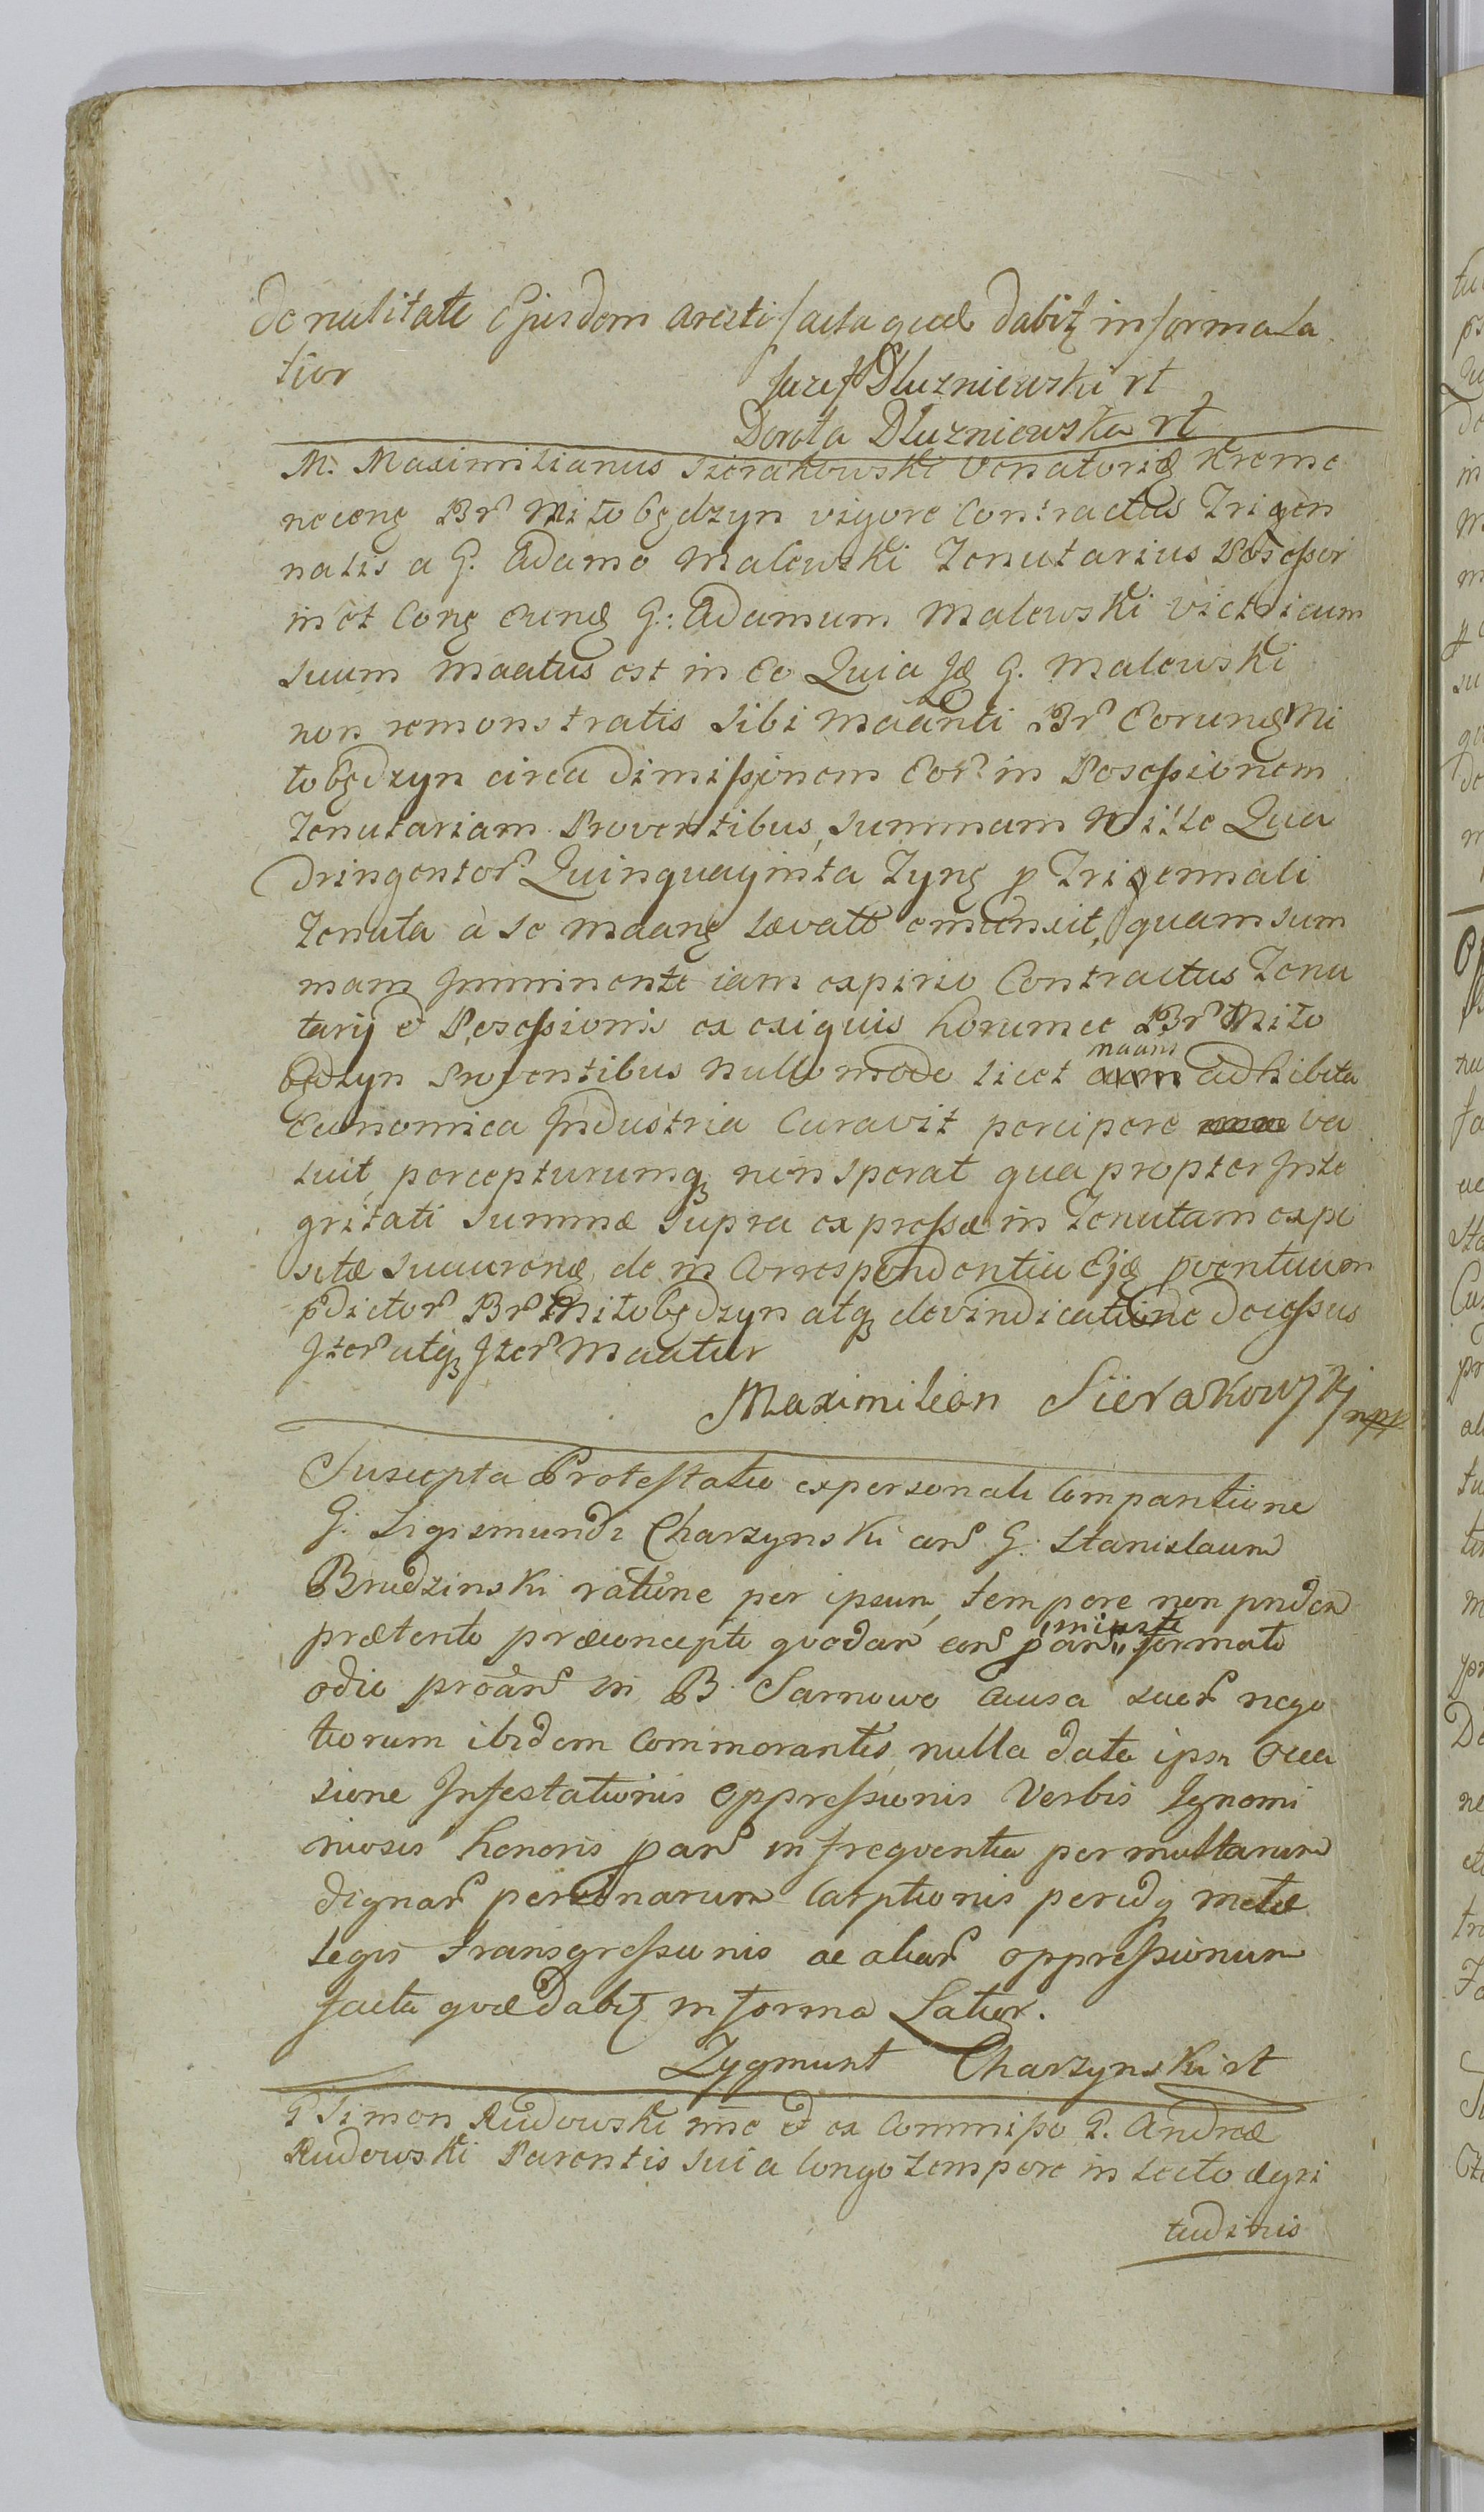 De nulitate Ejusdem aresti facta quæ dabitʒ in forma La
tior
Juzef Dłuzniewski rt
Dorota Dłuzniewska rt
M. Maximilianus Sierakowski Venatorię Kreme
necenę Br̃ Mitobędzyn vigore Contractus Trigen
nalis a G. Adamo Malewski Tenutarius Posessor
in et Conę Eunę G: Adamum Malewski victricum
suum maatus est in eo Quia Ię G. Malewski
non remonstratis sibi maanti Br̃ Eorunę Mi
tobędzyn circa dimissionem Eor̃ in Posessionem
Tenutariam Proventibus, summam Mille Qua
dringentor̃ Quinquaginta Tynę p Trigennali
Tenuta à se maanę Levatt emunxit, quam sum
mam Imminente iam expirio Contractus Tenu
tarij et Posessionis ex exiguis horumce Br̃ Mito
będzyn Proventibus nullo modo licet maans adhibita
Economica Industria Curavit percipere va
luit, percepturumqʒ non sperat qua propter Inte
gritati summæ supra expressæ in Tenutam expo
sitæ suuurenę, de in Correspondentia Eję pventuum
pdictor̃ Br̃ Mitobędzyn atqʒ devindicatione decessus
Iter̃ atqʒ Iter̃ Maatur
Maximilian Sierakowski mpp
Suscepta Protestatio ex personali Comparitione
G. Sigismundi Charzynski cor̃ G. Stanislaum
Brudzinski ratione per ipsum, tempore non priden
prætento præconcepto quodam cor̃ par̃ iniuste formato
odio proar̃ in B. Sarnowo Causa suor̃ nego
tiorum ibidem Commorantis, nulla data ipsi Occa
sione Infestationis oppressionis Verbis Ignomi
niosis honoris par̃ in freqventia permultarum
dignar̃ personarum Carptionis peridqʒ metæ
Legis transgressionis ac aliar̃ oppressionum
facta qvæ dabitʒ in forma Latior.
Zygmunt Charzynski rt
G Simon Rudowski ñne et ex Commisso G. Andreæ
Rudowski Parentis sui a longo tempore in Lecto ægri
tudinis